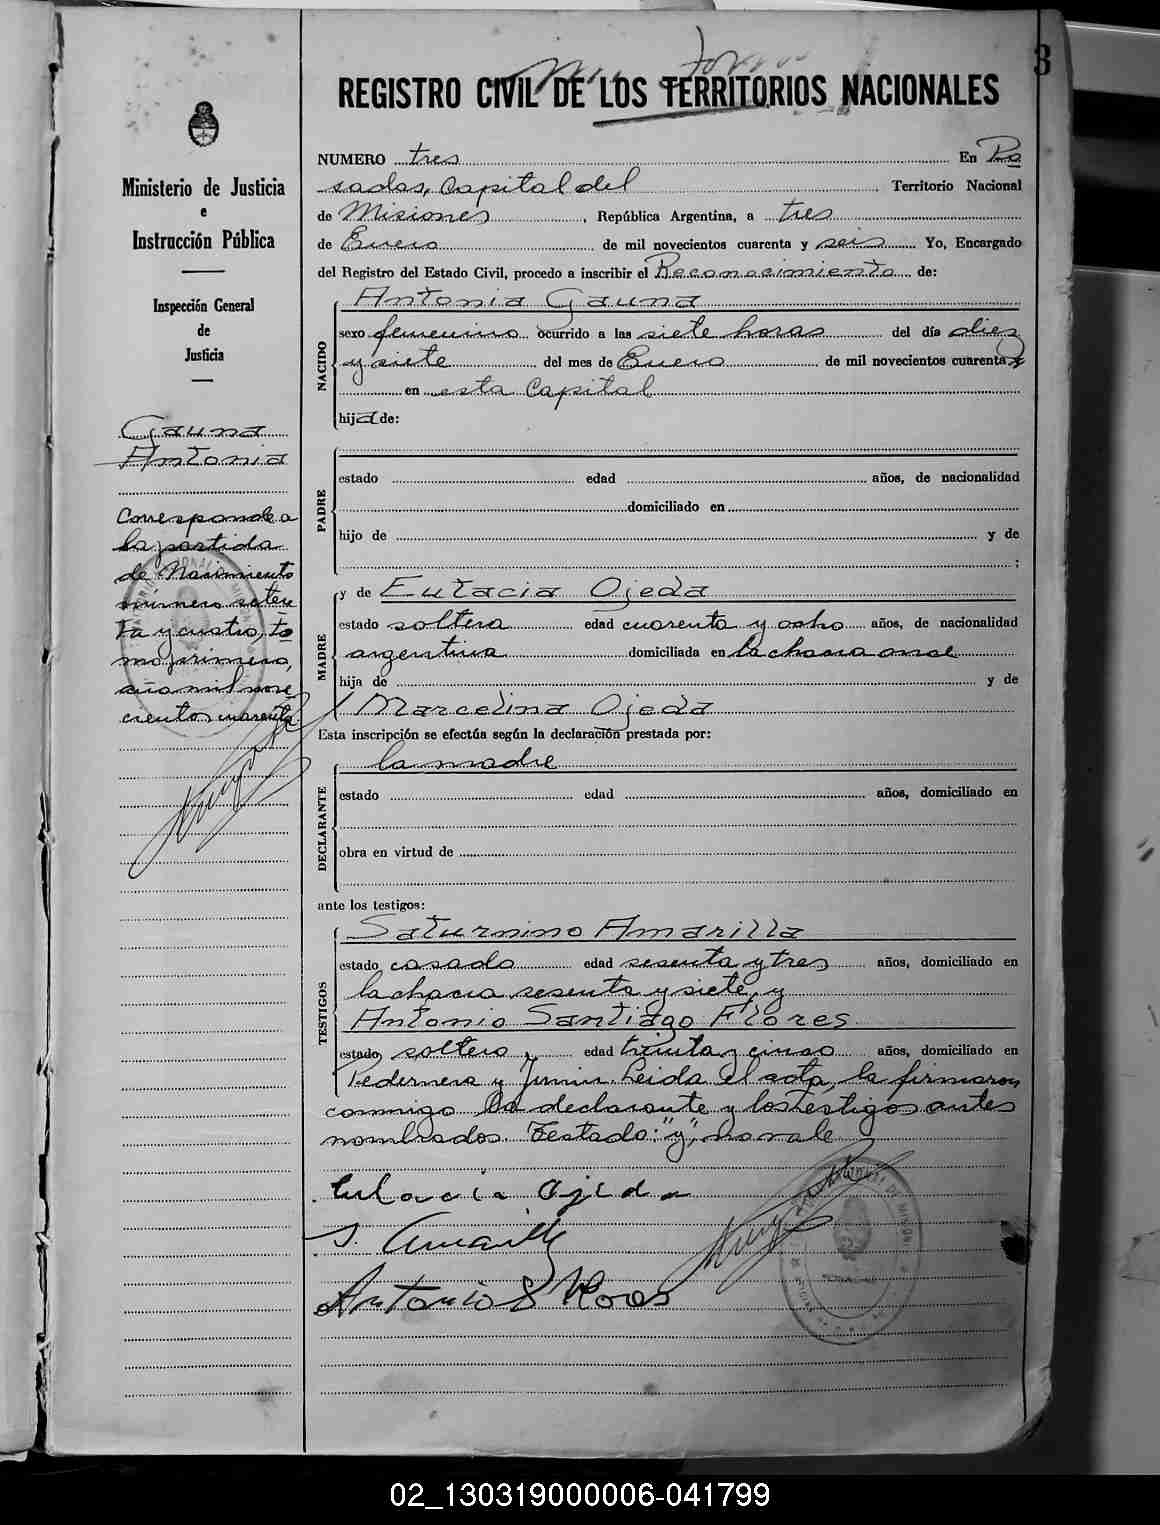 3
REGISTRO CIVIL DE LOS TERRITORIOS NACIONALES
Ministerio de Justicia
e
Instrucción Pública
Inspección General
de
Justicia
Gauna
Antonia
Corresponde a
la partida
de Nacimiento
número seten
ta y cuatro, to
mo primero,
año mil nove
cientos cuarenta
NUMERO tres En Po
sadas, Capital del Territorio Nacional
de Misiones, República Argentina, a tres
de Enero de mil novecientos cuarenta y seis Yo, Encargado
del Registro del Estado Civil, procedo a inscribir el Reconocimiento de:
NACIDO
Antonia Gauna
sexo femenino ocurrido a las siete horas del día diez
y siete del mes de Enero de mil novecientos cuarenta y
en esta Capital
hija de:
PADRE
estado edad años, de nacionalidad
domiciliado en
hijo de y de
;
MADRE
y de Eulacia Ojeda
estado soltera edad cuarenta y ocho años, de nacionalidad
argentina domiciliada en la chacra once
hija de y de
Marcelina Ojeda
Esta inscripción se efectúa según la declaración prestada por:
DECLARANTE
la madre
estado edad años, domiciliado en
obra en virtud de
ante los testigos:
TESTIGOS
Saturnino Amarilla
estado casado edad sesenta y tres años, domiciliado en
la chacra sesenta y siete, y
Antonio Santiago Flores
estado soltero, edad treinta y cinco años, domiciliado en
Pedernera y Junin. Leida el acta, la firmaron
conmigo la declarante y los testigos antes
nombrados. Testado: "y", no vale
Eulacia Ojeda
S. Amarilla
Antonio S
02_130319000006-041799